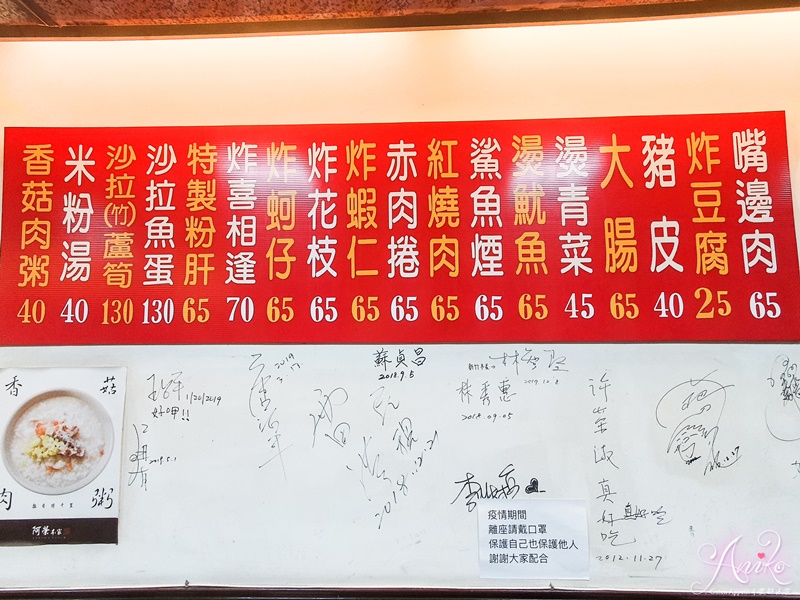 嘴邊肉 65
炸豆腐 25
豬皮 40
大腸 65
燙青菜 45
燙魷魚 65
鯊魚煙 65
紅燒肉 65
赤肉捲 65
炸蝦仁 65
炸花枝 65
炸蚵仔 65
炸喜相逢 70
特製粉肝 65
沙拉魚蛋 130
沙拉(竹)蘆筍 130
米粉湯 40
香菇肉粥 40
香菇
肉粥
阿榮本家
1/20/2019
好呷!!
2019.5.1
2019
蘇貞昌
2018.9.5
2018.12.21
林秀惠
2018.09.05
2019.12.8
真好吃
真好吃
2012.11.27
疫情期間
離座請戴口罩
保護自己也保護他人
謝謝大家配合